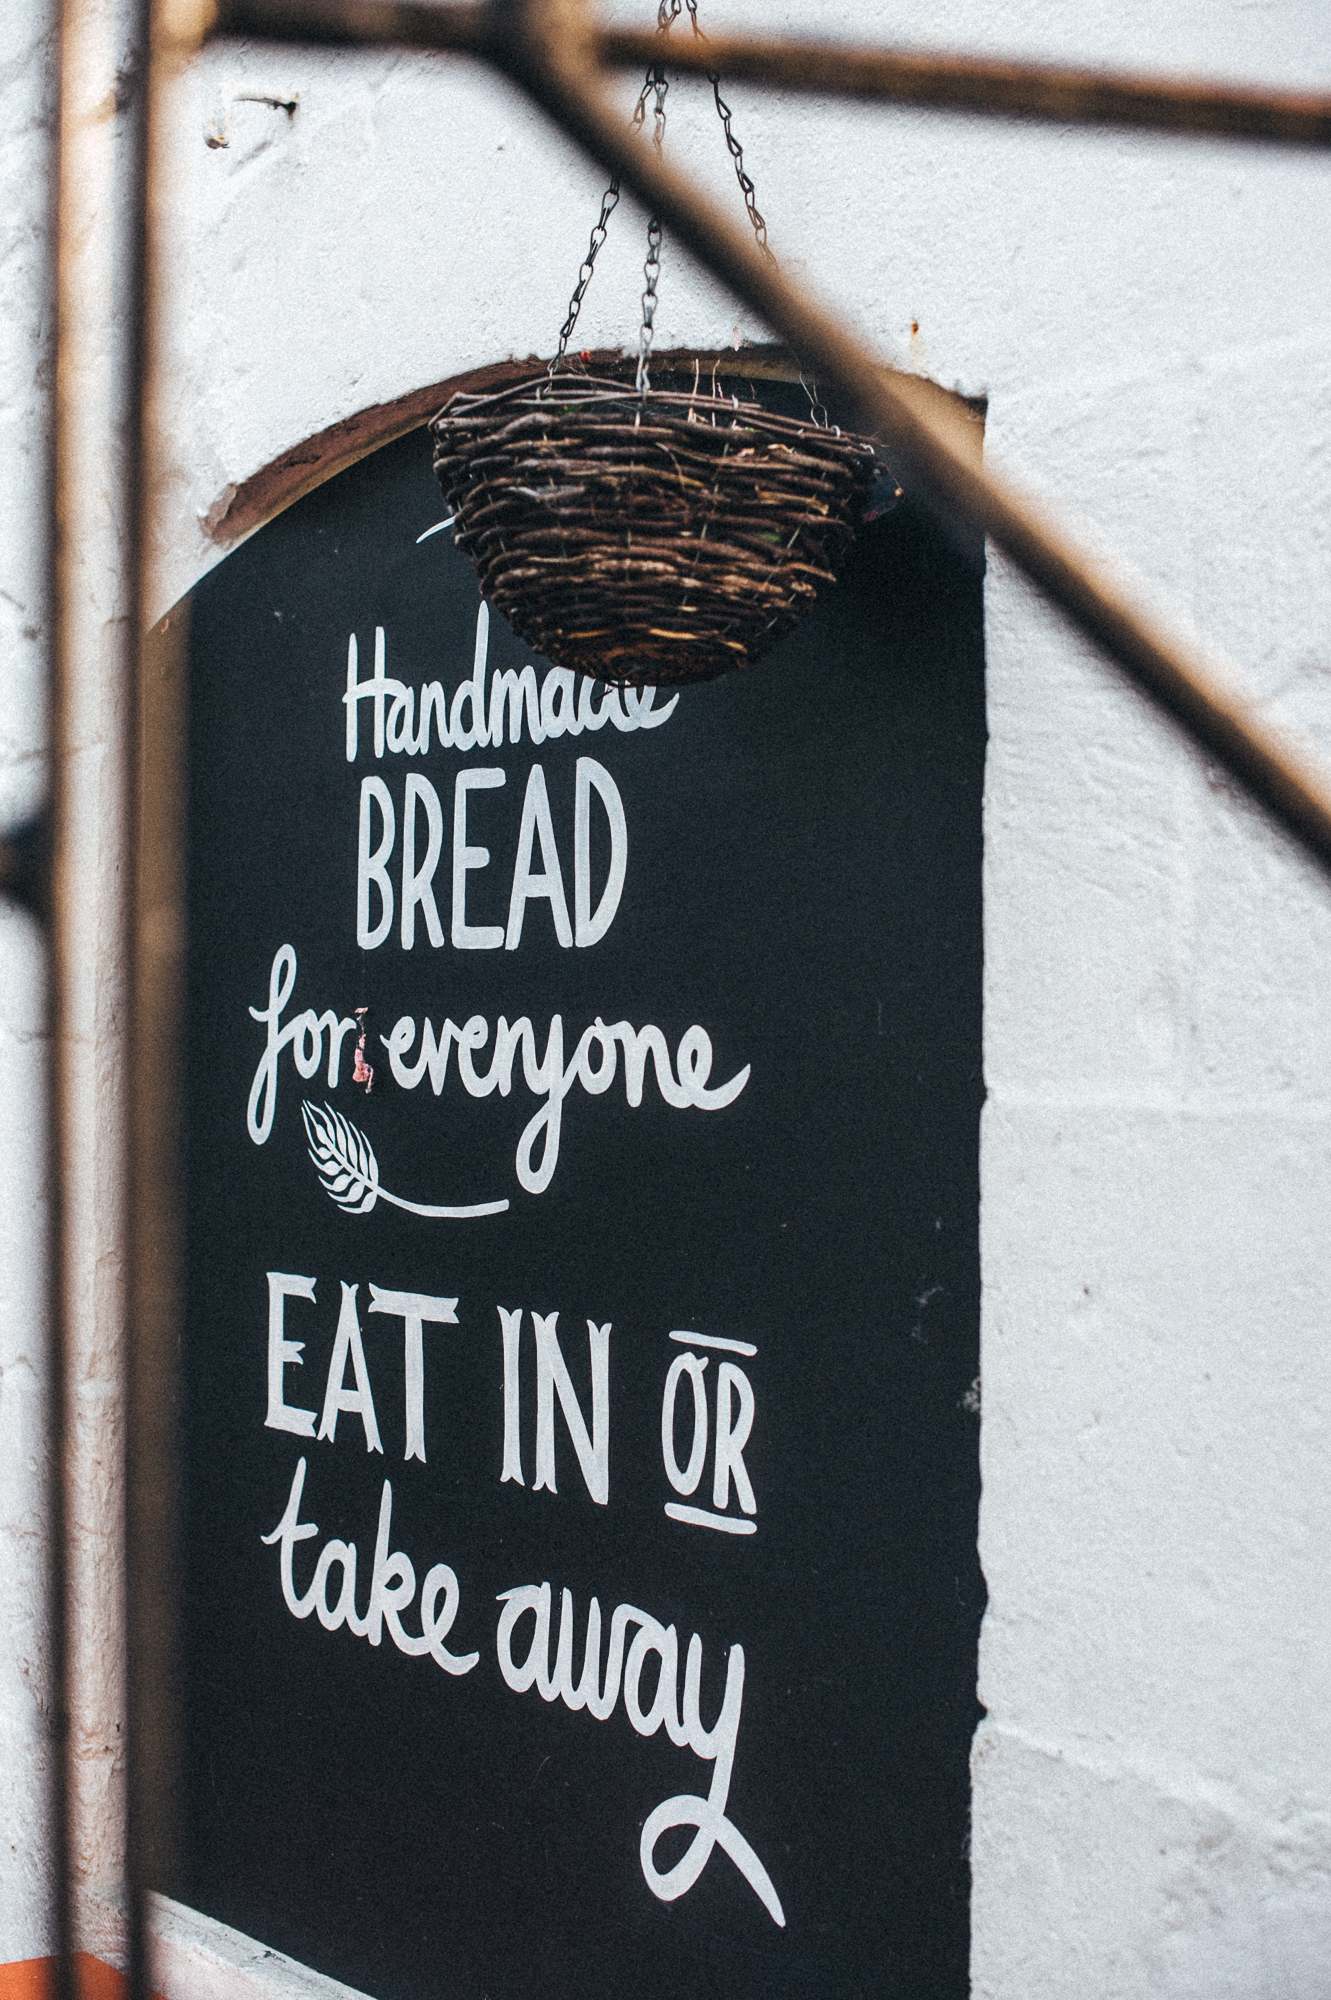 Handmade
BREAD
for everyone
EAT IN OR
take away